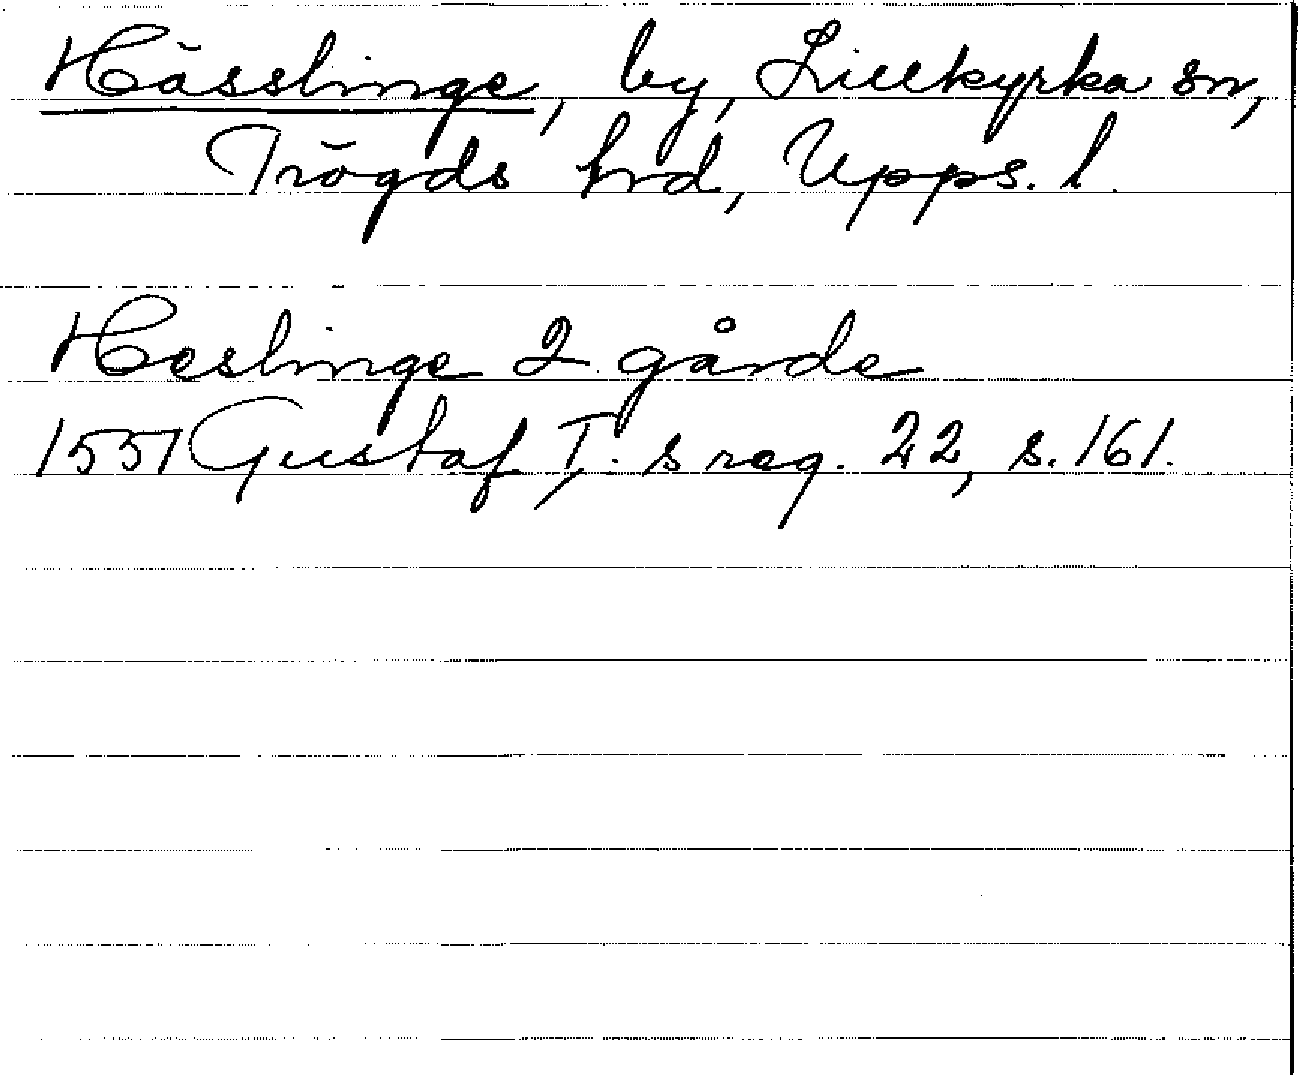 Hässlinge, by, Lillkyrka sn,
Trögds hrd, Upps. l.
Heslinge 2 gårde
1551 Gustaf I:s reg. 22, s. 161.